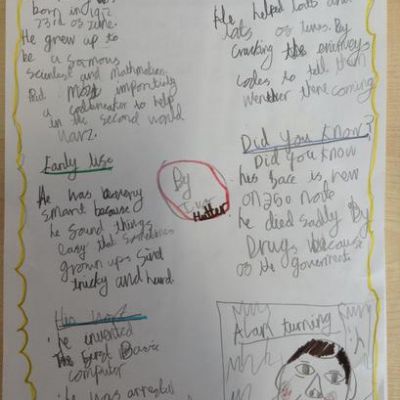 born in 1912
23rd of June.
He grew up to
be a famous
scientist and mathmatician
But most importintly
a codebreaker to help
in the second world
war2.
Early life
He was very
smart because
he found things
easy that sometimes
grown ups find
tricky and hard
His work
he invented
The first Basic
computer
he was arrested
By
Hatter
He helped lots and
lots of lives. By
cracking the enimeys
codes to tell them
wenther there coming
Did you know?
Did you know
his face is new
on a 50 note
he died sadly By
Drugs because
of the government
Alan turning